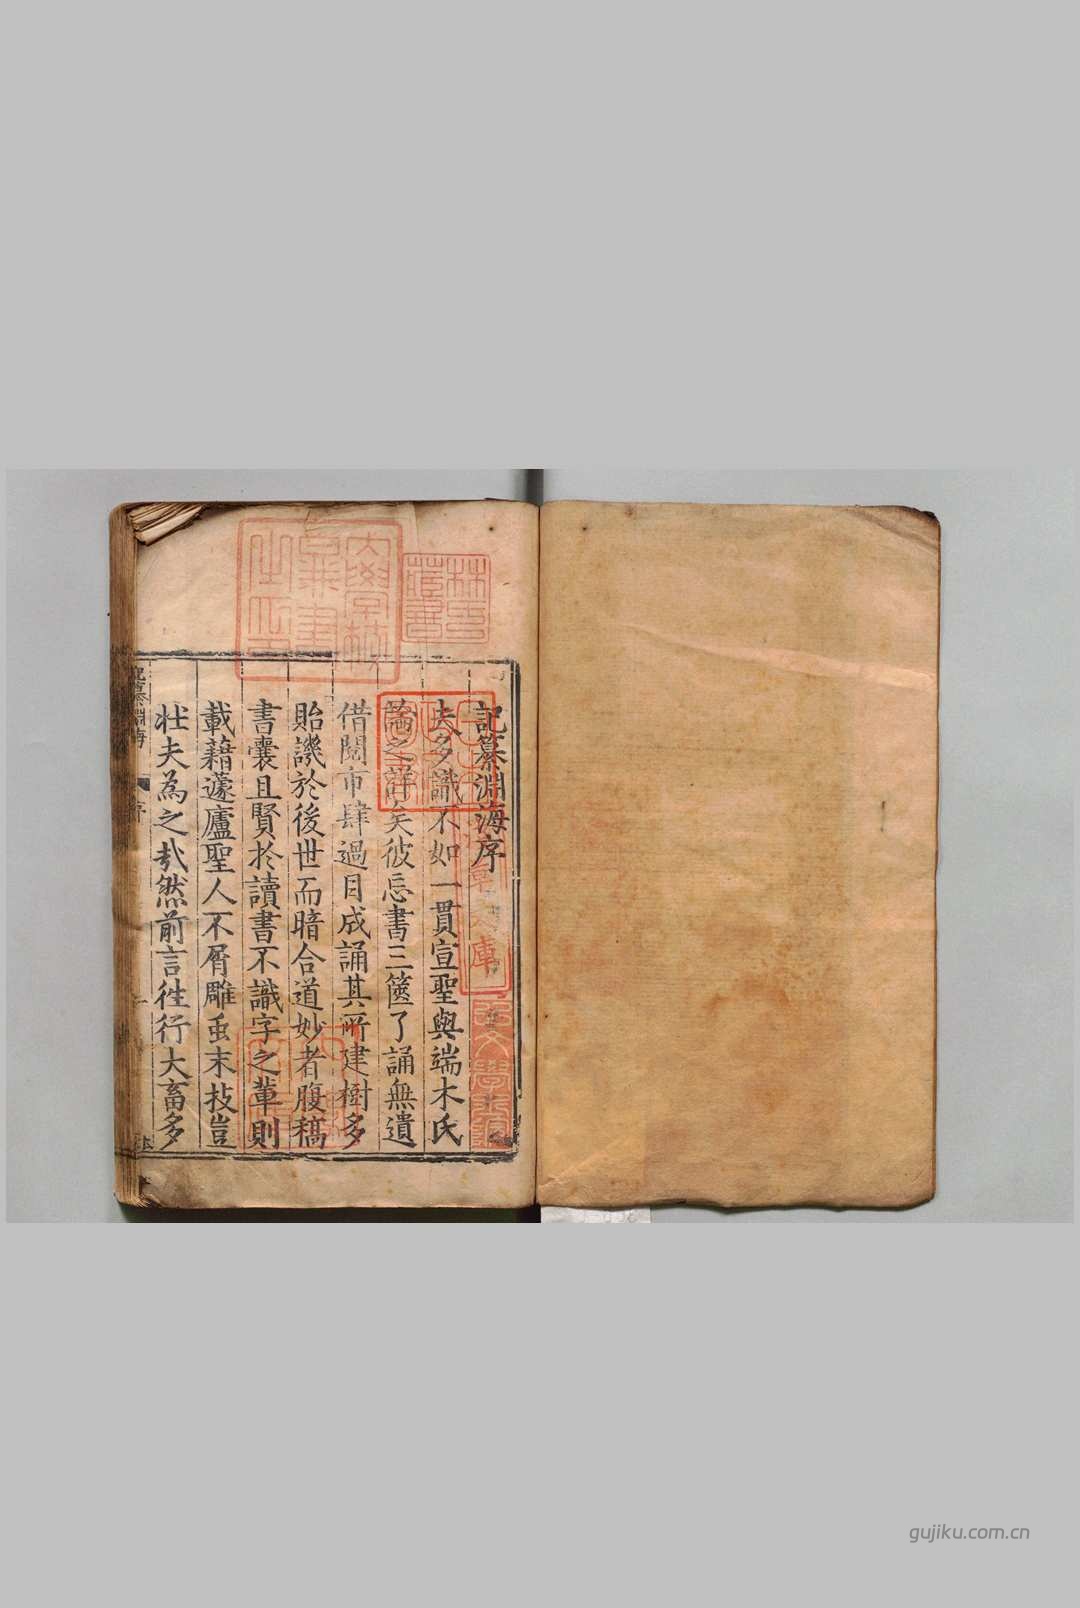 記纂淵海序
夫多識不如一貫宣聖與端木氏
論之詳矣彼忘書三篋了誦無遺
借閱市肆過目成誦其所建樹多
貽譏於後世而暗合道妙者腹稿
書囊且賢於讀書不識字之輩則
載籍蘧廬聖人不屑雕虫末技豈
壯夫為之㢤然前言徃行大畜多
記纂淵海
序
林氏
藏書
gujiku.com.cn